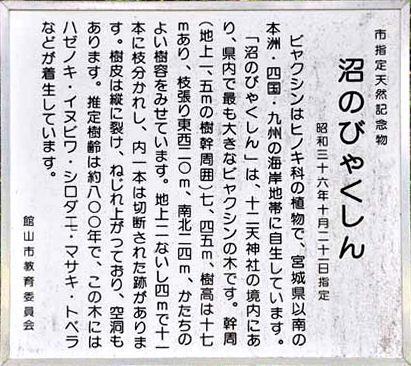 市指定天然記念物
沼のびゃくしん
昭和三十六年十月二十二日指定
ビャクシンはヒノキ科の植物で、宮城県以南の
本洲・四国・九州の海岸地帯に自生しています。
「沼のびゃくしん」は、十二天神社の境内にあ
り、県内で最も大きなビャクシンの木です。幹周
(地上一、五mの樹幹周囲)七、四五m、樹高は十七
mあり、枝張り東西二〇m、南北二四m、かたちの
よい樹容をみせています。地上二ないし四mで十一
本に枝分かれし、内一本は切断された跡がありま
す。樹皮は縦に裂け、ねじれ上がっており、空洞も
あります。推定樹齢は約八〇〇年で、この木には
ハゼノキ・イヌビワ・シロダモ・マサキ・トベラ
などが着生しています。
館山市教育委員会